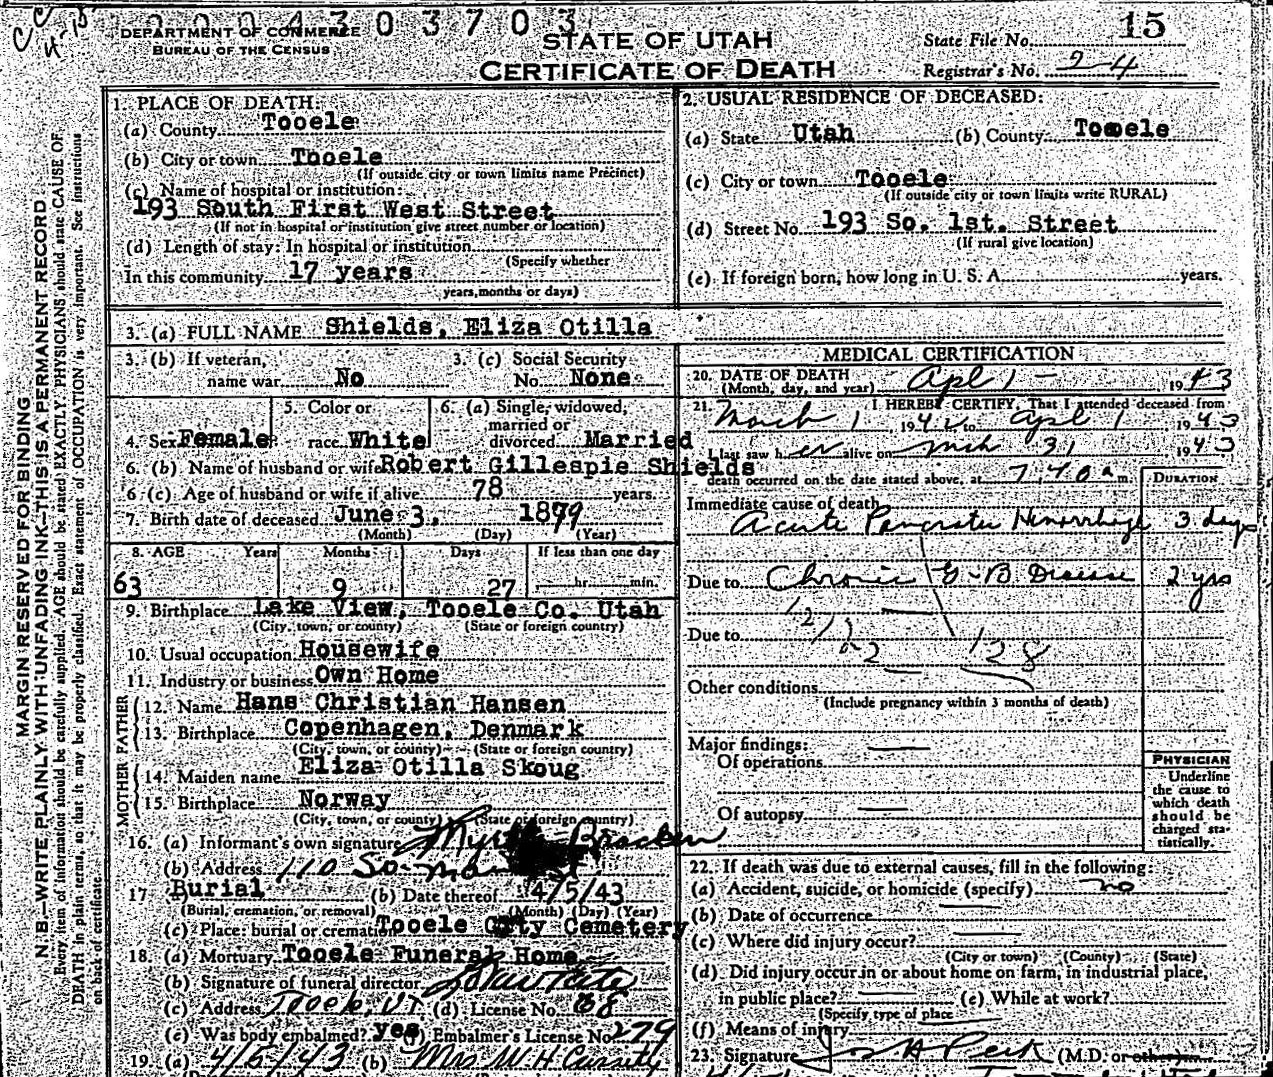 004303703
DEPARTMENT OF COMMERCE
BUREAU OF THE CENSUS
STATE OF UTAH
CERTIFICATE OF DEATH
State File No. 15
Registrar's No. 24
MARGIN RESERVED FOR BINDING
N. B.—WRITE PLAINLY WITH UNFADING INK—THIS IS A PERMANENT RECORD.
Every item of information should be carefully supplied. AGE should be stated EXACTLY. PHYSICIANS should state CAUSE OF
DEATH in plain terms, so that it may be properly classified. Exact statement of OCCUPATION is very important. See instructions
on back of certificate.
1. PLACE OF DEATH:
(a) County Tooele
(b) City or town Tooele
(If outside city or town limits name Precinct)
(c) Name of hospital or institution:
193 South First West Street
(If not in hospital or institution give street number or location)
(d) Length of stay: In hospital or institution
(Specify whether
In this community 17 years
years, months or days)
2. USUAL RESIDENCE OF DECEASED:
(a) State Utah (b) County Tooele
(c) City or town Tooele
(If outside city or town limits write RURAL)
(d) Street No. 193 So. 1st. Street
(If rural give location)
(e) If foreign born, how long in U. S. A. years.
3. (a) FULL NAME Shields, Eliza Otilla
3. (b) If veteran, name war No
3. (c) Social Security No. None
4. Sex Female
5. Color or race White
6. (a) Single, widowed, married or divorced Married
6. (b) Name of husband or wife Robert Gillespie Shields
6 (c) Age of husband or wife if alive 78 years.
7. Birth date of deceased June 3, 1879
(Month) (Day) (Year)
8. AGE Years Months Days If less than one day
63 9 27 hr. min.
9. Birthplace Lake View, Tooele Co. Utah
(City, town, or county) (State or foreign country)
10. Usual occupation Housewife
11. Industry or business Own Home
FATHER
12. Name Hans Christian Hansen
13. Birthplace Copenhagen, Denmark
(City, town, or county) (State or foreign country)
MOTHER
14. Maiden name Eliza Otilla Skoug
15. Birthplace Norway
(City, town, or county) (State or foreign country)
16. (a) Informant's own signature Myrtle Bracken
(b) Address 110 So. Main
17 Burial (b) Date thereof 4/5/43
(Burial, cremation, or removal) (Month) (Day) (Year)
(c) Place: burial or cremati Tooele City Cemetery
18. (a) Mortuary Tooele Funeral Home
(b) Signature of funeral director
(c) Address Tooele, UT. (d) License No. 68
(e) Was body embalmed? yes (f) Embalmer's License No. 279
19. (a) 4/5/43 (b) Mrs W H Cassity
MEDICAL CERTIFICATION
20. DATE OF DEATH
(Month, day, and year) Apl 1 - , 1943
21. I HEREBY CERTIFY, That I attended deceased from
March 1, 1942 to Apl 1 1943
I last saw her alive on Mch 31 1943
death occurred on the date stated above, at 7:40 a m.
DURATION
Immediate cause of death
Acute Pancreatic Hemorrhage 3 days
Due to Chronic G-B Disease 2 yrs
Due to
128
Other conditions
(Include pregnancy within 3 months of death)
Major findings:
Of operations
Of autopsy
PHYSICIAN
Underline
the cause to
which death
should be
charged sta-
tistically.
22. If death was due to external causes, fill in the following:
(a) Accident, suicide, or homicide (specify) no
(b) Date of occurrence
(c) Where did injury occur?
(City or town) (County) (State)
(d) Did injury occur in or about home on farm, in industrial place,
in public place? (e) While at work?
(Specify type of place
(f) Means of injury
23. Signature Jos H Peck (M.D. or other)